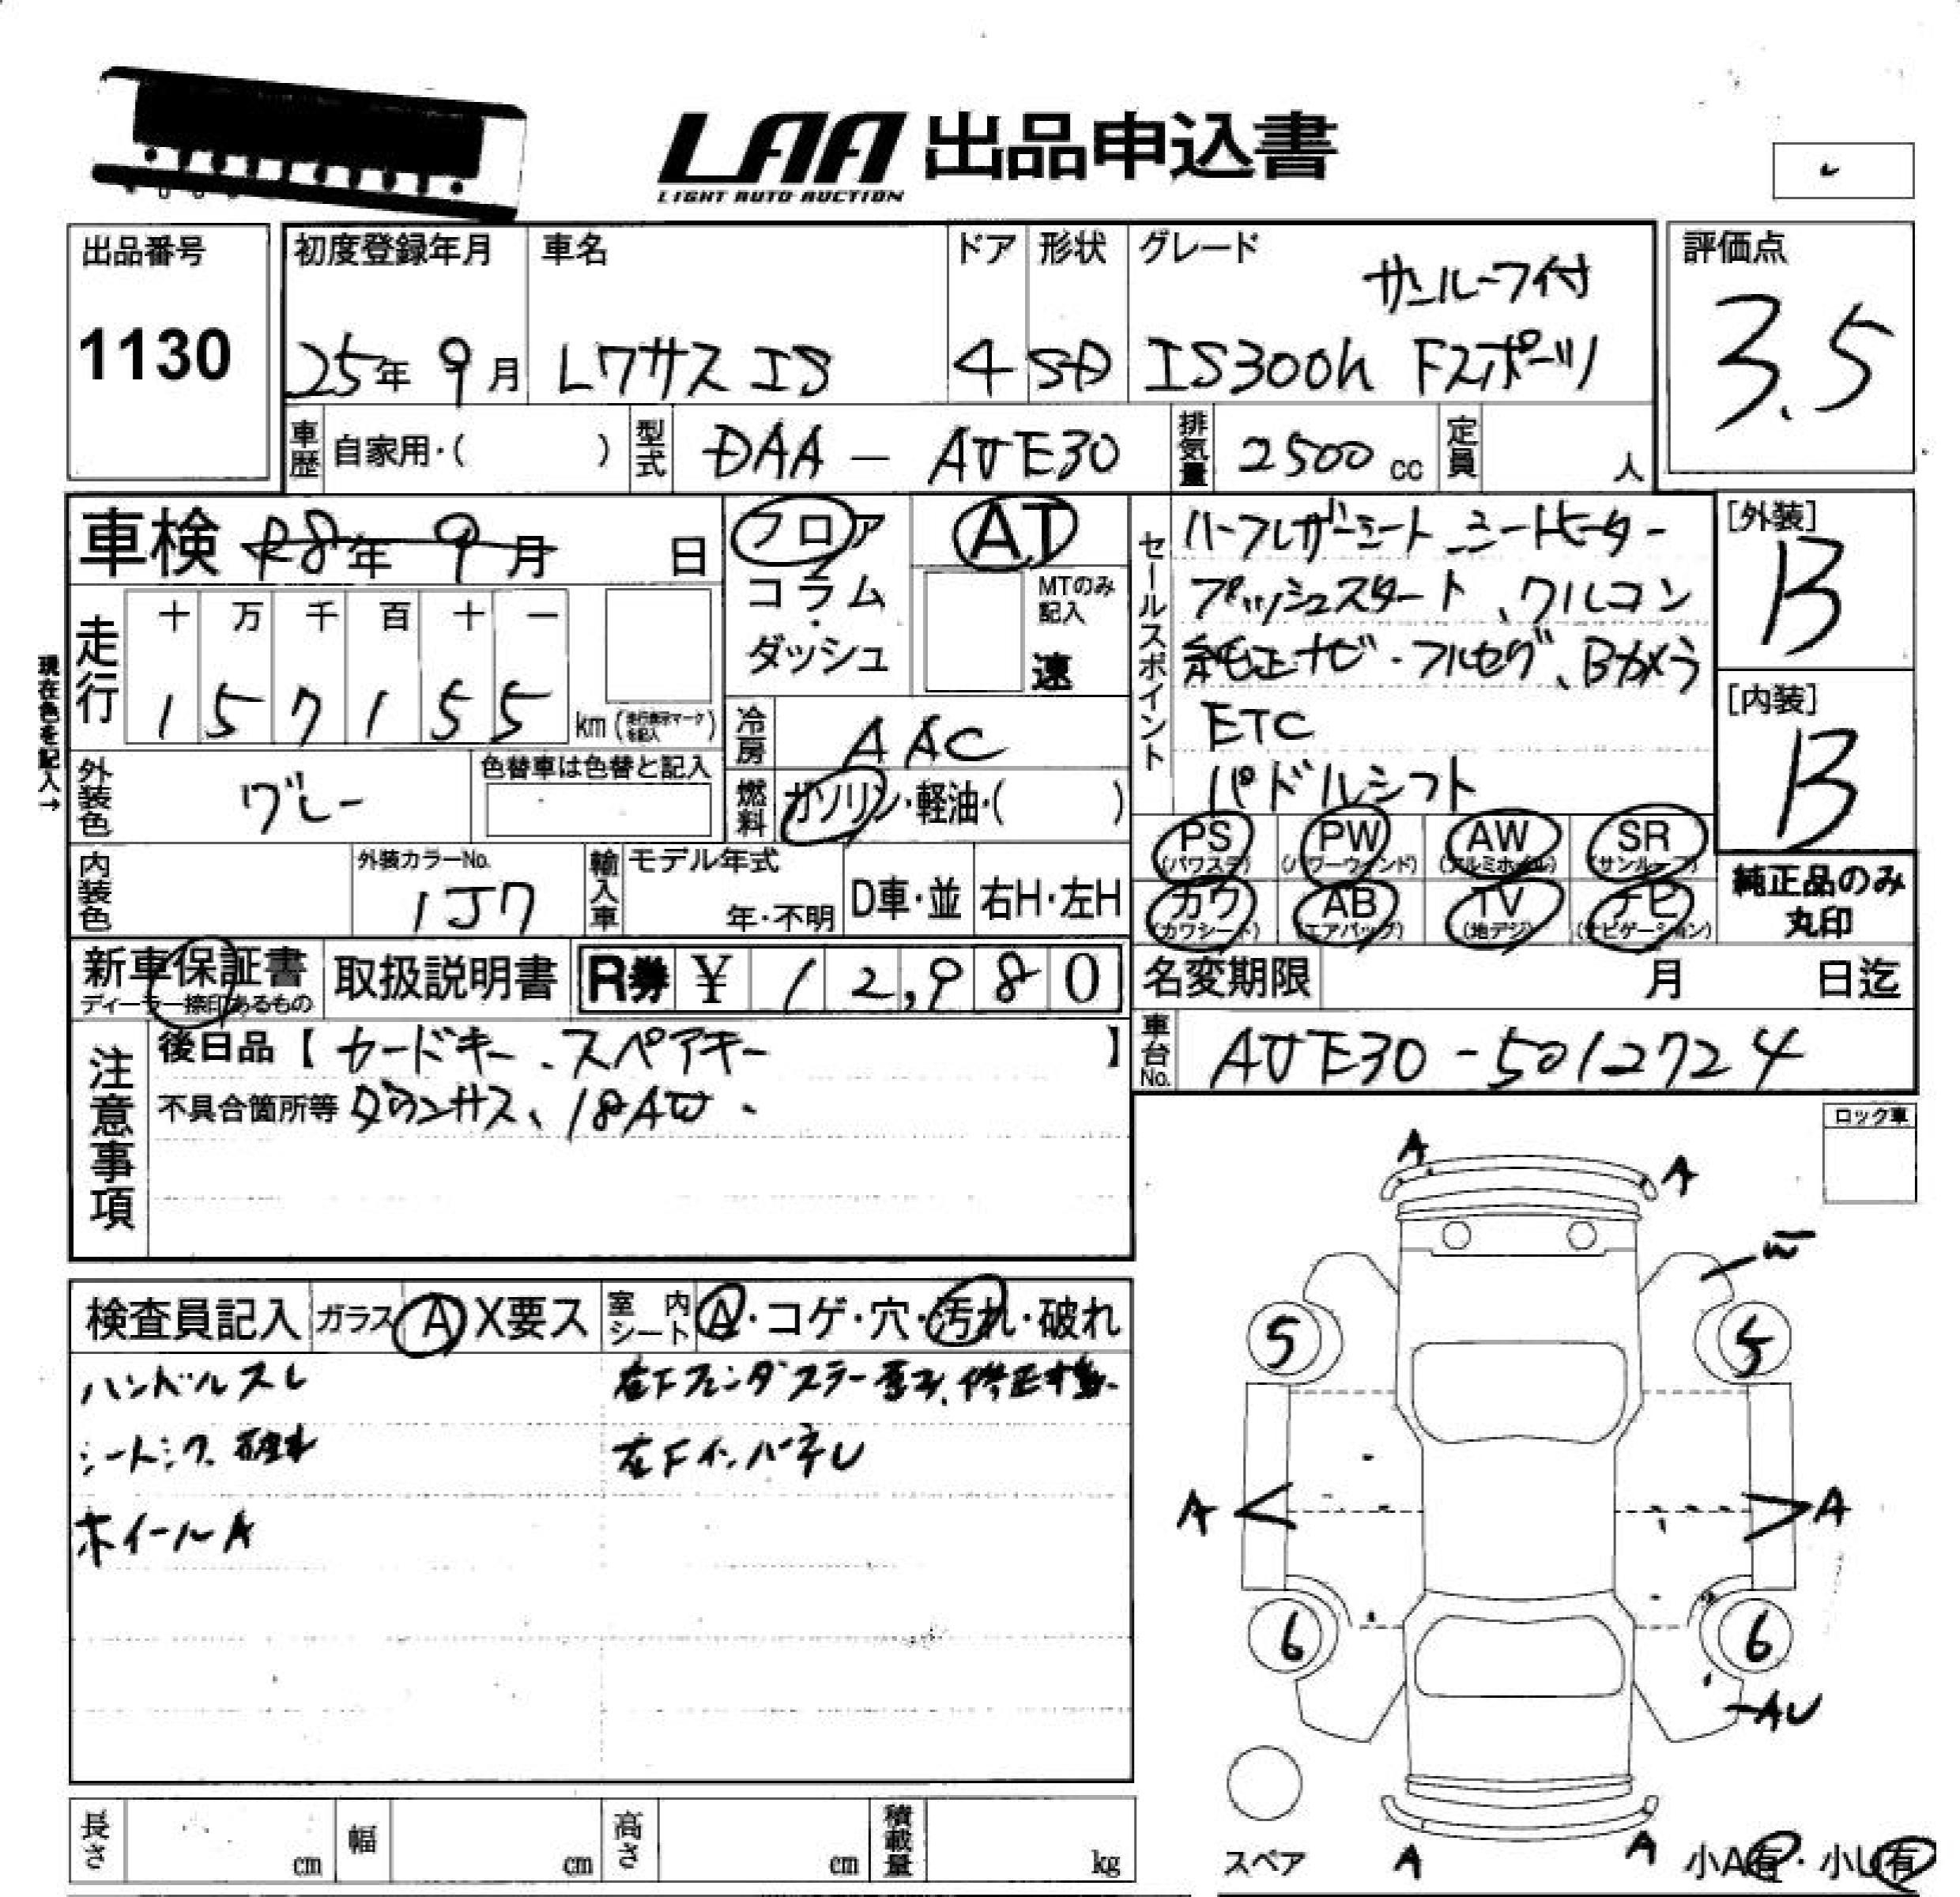 LAA 出品申込書
LIGHT AUTO AUCTION
出品番号
1130
初度登録年月
25年 9月
車名
レクサス IS
ドア
4
形状
SD
グレード
サンルーフ付
IS300h Fスポーツ
評価点
3.5
車歴 自家用・( )
型式 DAA - AVE30
排気量 2500 cc
定員 人
車検 R8年 9月 日
フロア
コラム
・
ダッシュ
AT
MTのみ
記入
速
セールスポイント
ハーフレザーシート シートヒーター
プッシュスタート、クルコン
純正ナビ・フルセグ、Bカメラ
ETC
パドルシフト
[外装]
B
[内装]
B
現在色を記入→
走行
十 万 千 百 十 一
1 5 7 1 5 5 km (走行表示マークを記入)
冷房 AAC
外装色 グレー
色替車は色替と記入
燃料 ガソリン・軽油・( )
PS (パワステ) PW (パワーウィンド) AW (アルミホイル) SR (サンルーフ)
カワ (カワシート) AB (エアバック) TV (地デジ) ナビ (ナビゲーション)
純正品のみ
丸印
内装色
外装カラーNo.
1J7
輸入車
モデル年式
年・不明
D車・並
右H・左H
新車保証書
ディーラー捺印あるもの
取扱説明書
R券 ¥ 12,980
名変期限 月 日迄
車台No. AVE30-5012724
注意事項
後日品【カードキー、スペアキー 】
不具合箇所等 ダウンサス、18AW、
ロック車
検査員記入
ガラス A X要ス
室内シート A・コゲ・穴・汚れ・破れ
ハンドルスレ
ホイールA
A
A
W
5
5
A
A
6
6
AU
スペア
A
A
小A有・小U有
長さ cm
幅 cm
高さ cm
積載量 kg